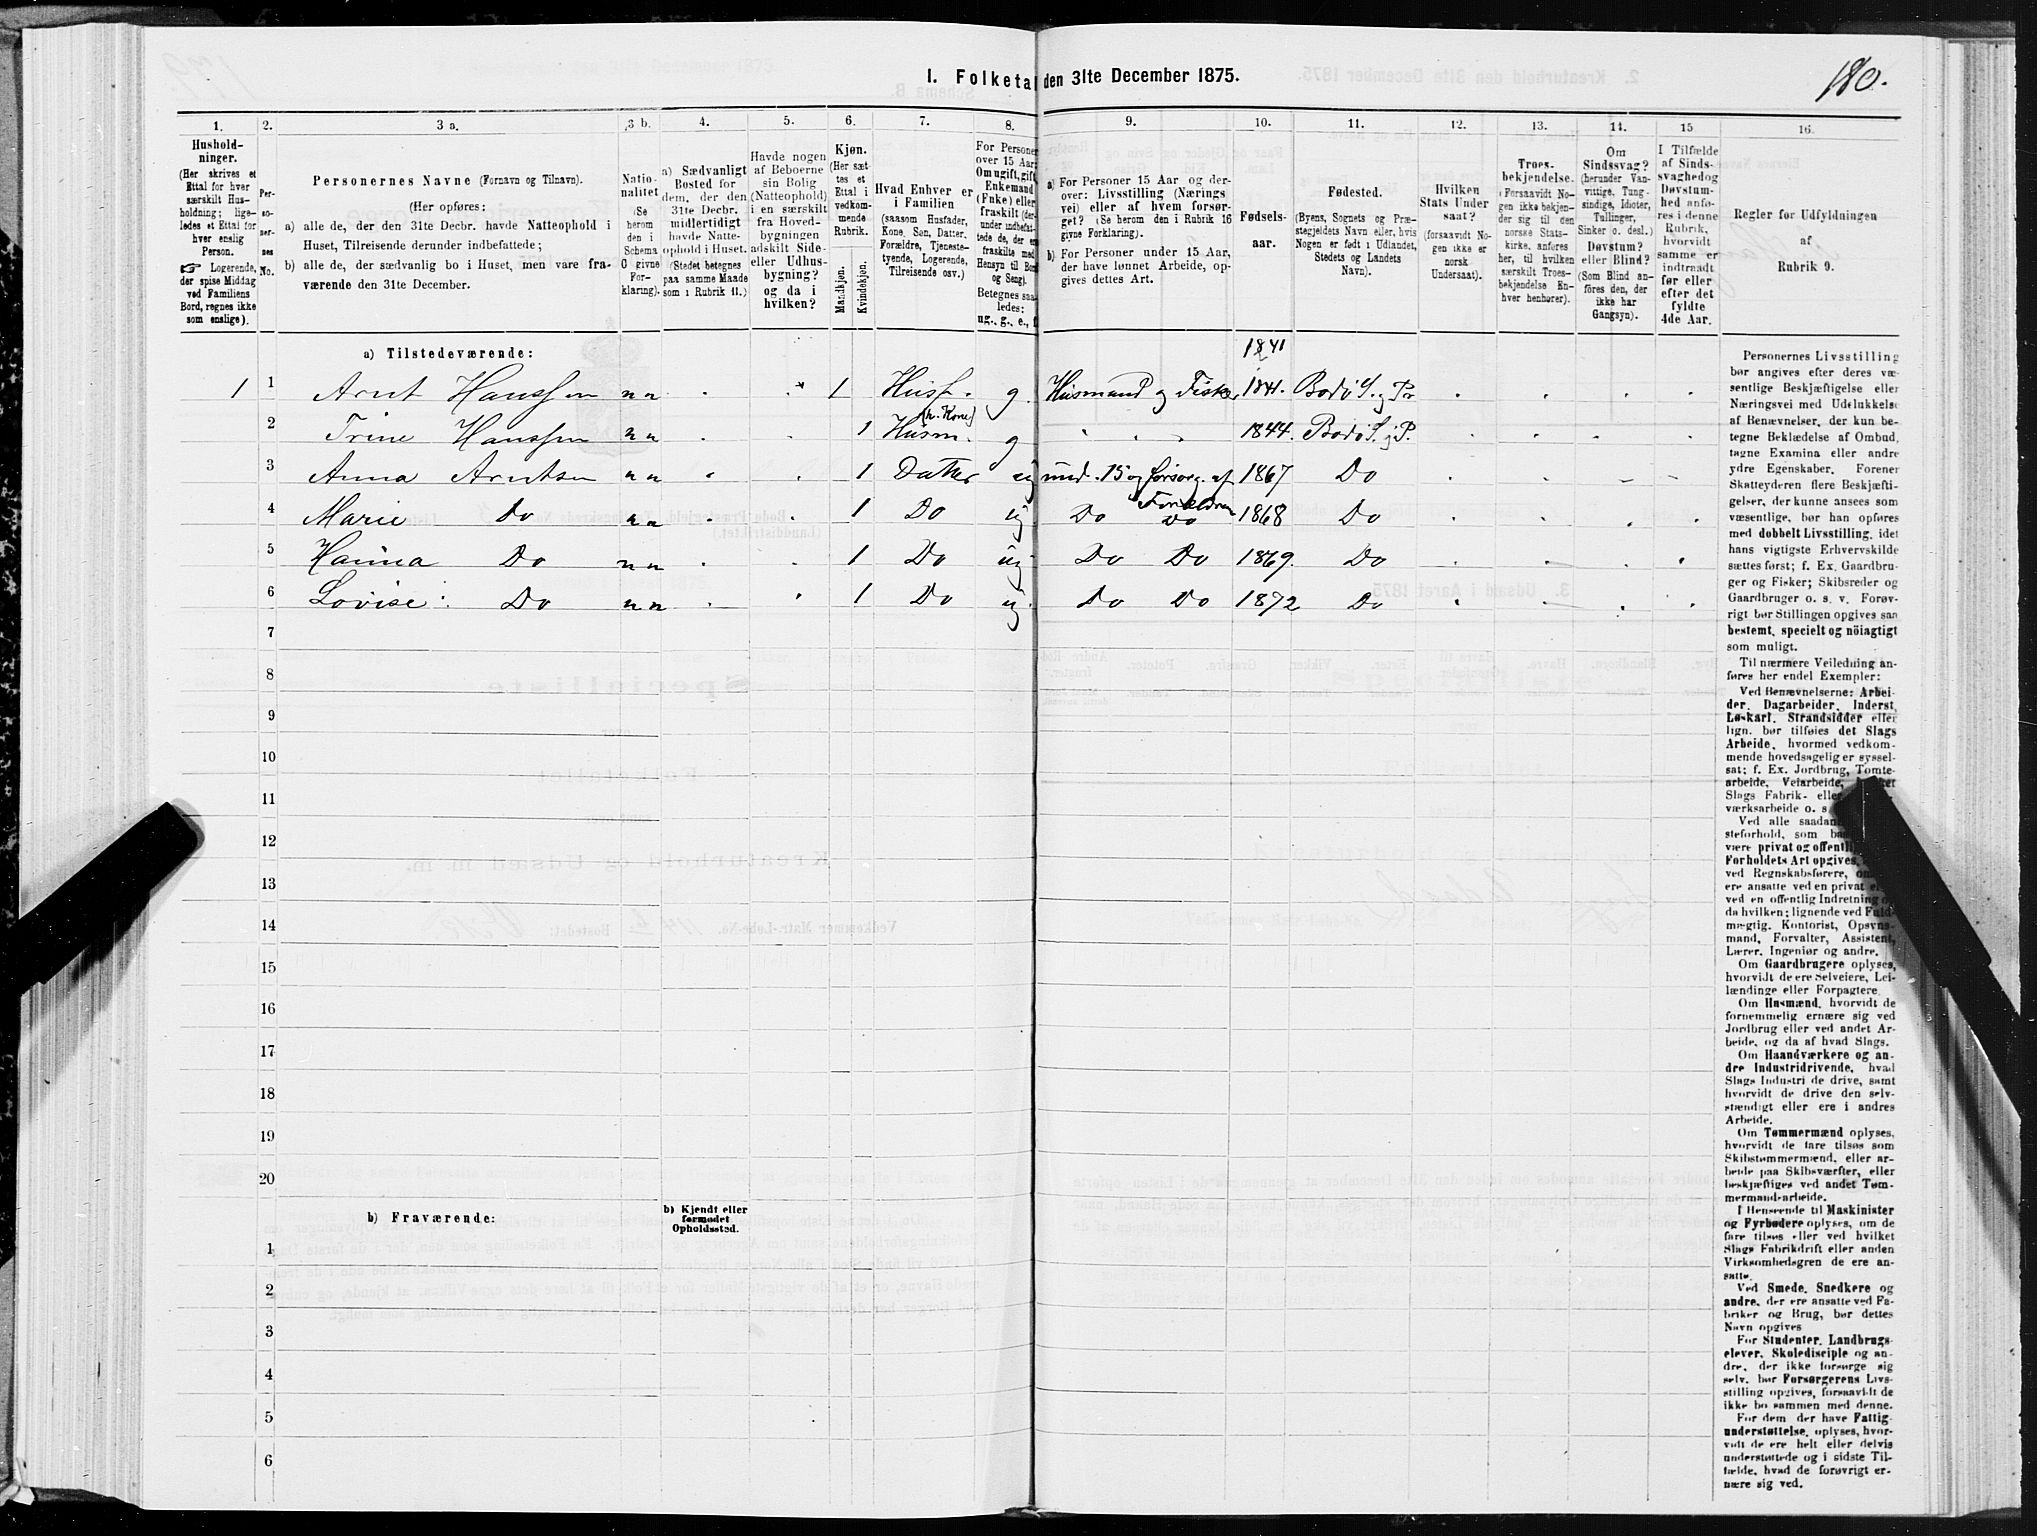 180.
I. Folketal den 31te December 1875.
1. 2. 3 a. 3 b. 4. 5. 6. 7. 8. 9. 10. 11. 12. 13. 14. 15 16.
Hushold-
ninger.
(Her skrives et
Ettal for hver
særskilt Hus-
holdning; lige-
ledes et Ettal for
hver enslig
Person.
☞ Logerende,
der spise Middag
ved Familiens
Bord, regnes ikke
som enslige).
Per-
so-
ner-
nes
No.
Personernes Navne (Fornavn og Tilnavn).
(Her opføres:
a) alle de, der den 31te Decbr. havde Natteophold i
Huset, Tilreisende derunder indbefattede;
b) alle de, der sædvanlig bo i Huset, men vare fra-
værende den 31te December.
Natio-
nalitet
(Se
herom
den i
Schema
O givne
For-
klaring).
a) Sædvanligt
Bosted for
dem, der den
31te Decbr.
midlertidigt
havde Natte-
ophold i Huset.
(Stedet betegnes
paa samme Maade
som i Rubrik 11.)
Havde nogen
af Beboerne
sin Bolig
(Natteophold)
i en særskilt
fra Hoved-
bygningen
adskilt Side-
eller Udhus-
bygning?
og da i
hvilken?
Kjøn.
(Her sæt-
tes et
Ettal i
vedkom-
mende
Rubrik.
Mandkjøn.
Kvindekjøn.
Hvad Enhver er
i Familien
(saasom Husfader,
Kone, Søn, Datter,
Forældre, Tjeneste-
tyende, Logerende,
Tilreisende osv.)
For Personer
over 15 Aar:
Om ugift, gift,
Enkemand
(Enke) eller
fraskilt (der-
under indbefat-
tede de, der er
fraskilte med
Hensyn til Bord
og Seng).
Betegnes saa-
ledes:
ug., g., e., f.
a) For Personer 15 Aar og der-
over: Livsstilling (Nærings
vei) eller af hvem forsør-
get? (Se herom den i Rubrik 16
givne Forklaring).
b) For Personer under 15 Aar,
der have lønnet Arbeide, op-
gives dettes Art.
Fødsels-
aar.
Fødested.
(Byens, Sognets og Præ-
stegjeldets Navn eller, hvis
Nogen er født i Udlandet,
Stedets og Landets
Navn).
Hvilken
Stats Under
saat?
(forsaavidt No-
gen ikke er
norsk
Undersaat).
Troes-
bekjendelse.
(Forsaavidt No-
gen ikke bekjen-
der sig til den
norske Stats-
kirke, anføres
her, til hvilken
særskilt Troes-
bekjendelse En-
hver henhører).
Om
Sindssvag?
(herunder Van-
vittige, Tung-
sindige, Idioter,
Tullinger,
Sinker o. desl.)
Døvstum?
eller Blind?
(Som Blind an-
føres den, der
ikke har
Gangsyn).
I Tilfælde
af Sinds-
svaghed og
Døvstum-
hed anfø-
res i denne
Rubrik,
hvorvidt
samme er
indtraadt
før eller
efter det
fyldte
4de Aar.
Regler for Udfyldningen
af
Rubrik 9.
a) Tilstedeværende:
1841
1 1 Arnt Hanssen nn 1 Husf. g. Husmand og Fisker 1841. Bodø S. og Pr
2 Trine Hanssen nn 1 Husm. (h. Kone) g 1844. Bodø S. og P.
3 Anna Arntsen nn 1 Datter ug und. 15 og forsørg. af 1867 Do
Forældrene
4 Marie Do nn 1 Do ug Do Do 1868 Do
5 Hanna Do nn 1 Do ug Do Do 1869. Do
6 Lovise Do nn 1 Do ug. Do Do 1872 Do
7
8
9
10
11
12
13
14
15
16
17
18
19
20
b) Fraværende:
b) Kjendt eller
formodet
Opholdssted.
1
2
3
4
5
6
Personernes Livsstilling
bør angives efter deres væ-
sentlige Beskjæftigelse eller
Næringsvei med Udelukkelse
af Benævnelser, der kun be-
tegne Beklædelse af Ombud,
tagne Examina eller andre
ydre Egenskaber. Forener
Skatteyderen flere Beskjæfti-
gelser, der kunne ansees som
væsentlige, bør han opføres
med dobbelt Livsstilling, idet
hans vigtigste Erhvervskilde
sættes først; f. Ex. Gaardbru-
ger og Fisker; Skibsreder og
Gaardbruger o. s. v. Forøv-
rigt bør Stillingen opgives saa
bestemt, specielt og nöiagtigt
som muligt.
Til nærmere Veiledning an-
føres her endel Exempler:
Ved Benævnelserne: Arbei-
der, Dagarbeider, Inderst,
Løskarl, Strandsidder eller
lign. bør tilføies det Slags
Arbeide, hvormed vedkom-
mende hovedsagelig er syssel-
sat; f. Ex. Jordbrug, Tomte-
arbeide, Veiarbeide,
Slags Fabrik- eller
værksarbeide o. s
Ved alle saadan
steforhold, som
være privat og offentli
Forholdets Art opgives,
ved Regnskabsførere,
ere ansatte ved en privat
ved en offentlig Indretning
da hvilken; lignende ved Fuld-
mægtig, Kontorist, Opsyns-
mand, Forvalter, Assistent,
Lærer, Ingeniør og andre.
Om Gaardbrugere oplyses,
hvorvidt de ere Selveiere, Lei-
lændinge eller Forpagtere.
Om Husmænd, hvorvidt de
fornemmelig ernære sig ved
Jordbrug eller ved andet Ar-
beide, og da af hvad Slags.
Om Haandværkere og an-
dre Industridrivende, hvad
Slags Industri de drive, samt
hvorvidt de drive den selv-
stændigt eller ere i andres
Arbeide.
Om Tømmermænd oplyses,
hvorvidt de fare tilsøs som
Skibstømmermænd, eller ar-
beide paa Skibsværfter, eller
beskjæftiges ved andet Tøm-
mermandsarbeide.
I Henseende til Maskinister
og Fyrbødere oplyses, om de
fare tilsøs eller ved hvilket
Slags Fabrikdrift eller anden
Virksomhedsgren de ere an-
satte.
Ved Smede, Snedkere og
andre, der ere ansatte ved Fa-
briker og Brug, bør dettes
Navn opgives
For Studenter, Landbrugs-
elever, Skoledisciple og an-
dre, der ikke forsørge sig
selv, bør Forsørgerens Livs-
stilling opgives, forsaavidt de
ikke bo sammen med denne.
For dem der have Fattig-
understøttelse, oplyses, hvor-
vidt de ere helt eller delvis
understøttede og i sidste Til-
fælde, hvad de forøvrigt er-
nære sig ved.